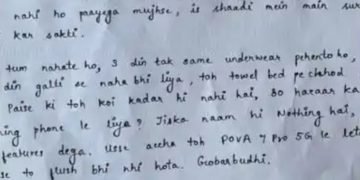 nahi ho paayega mujhse, is shaadi mein main sur
kar sakti.
tum nahate ho, 3 din tak same underwear pehento ho,
din galti se naha bhi liya, toh towel bed pe chhod
Paise ki toh koi kadar hi nahi hai, 80 hazaar ka
ing phone le liya? Jiska naam hi Nothing hai,
features dega. Usse accha toh POVA 7 Pro 5G le let
se to flush bhi nhi hota. Gobarbudhi.